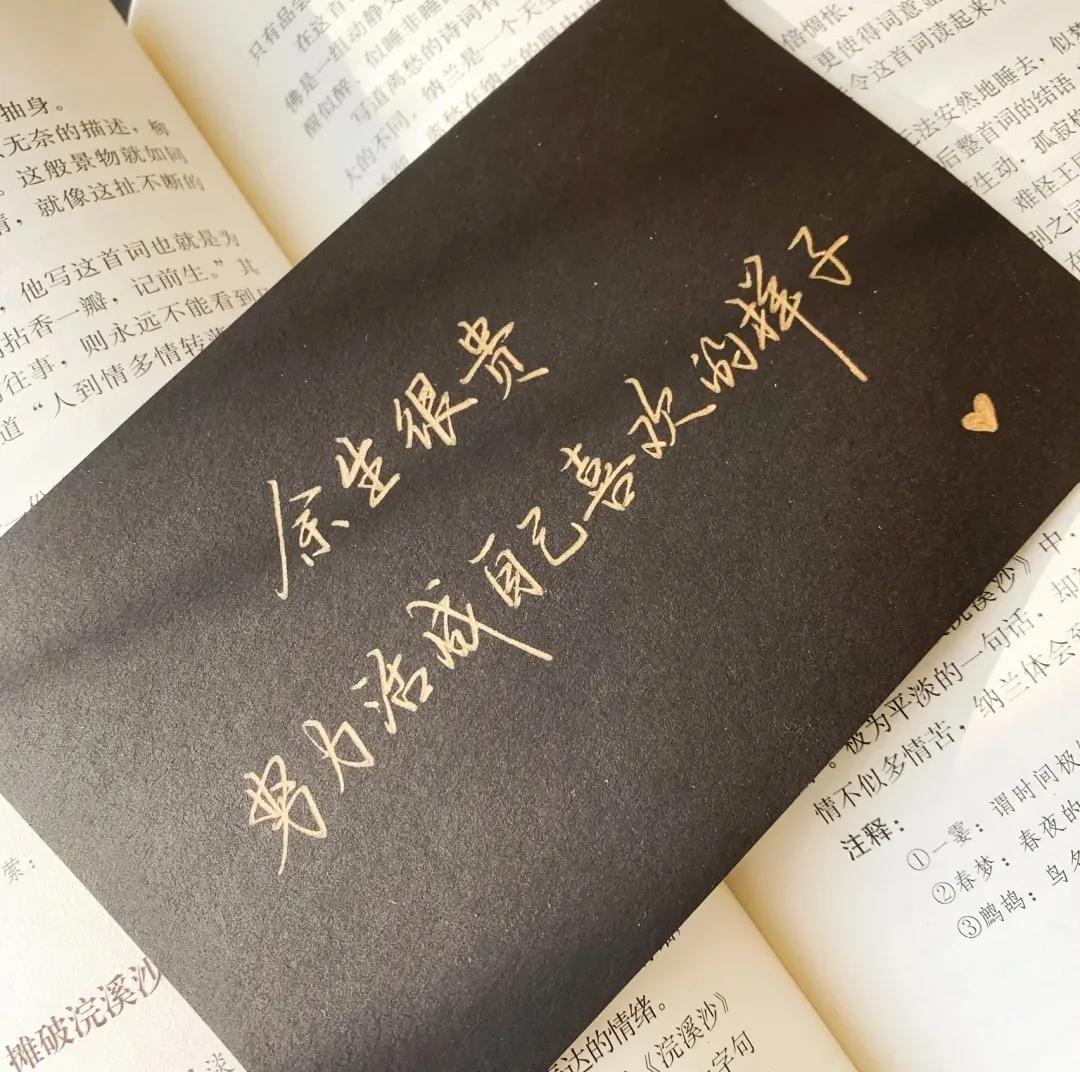 余生很贵
努力活成自己喜欢的样子
抽身。
无奈的描述，柳
。这般景物就如同
情，就像这扯不断的
，他写这首词也就是为
拈香一瓣，记前生。”其
往事，则永远不能看到
道“人到情多情转薄
只有品学
在这首
佛是一组动静交
似睡非睡
醒似醉
写道离愁的诗词有
大的不同，纳兰是一个天生
倍惆怅，
更使得词意
令这首词读起来
法安然地睡去，似梦
后整首词的结语
生动，孤寂
难怪王国
别之词
浣溪沙》中，
。极为平淡的一句话，却
情不似多情苦，纳兰体会
注释：
①一霎：谓时间极
②春梦：春夜的
③鹧鸪：鸟名
萦：
摊破浣溪沙
谈
达的情绪。
《浣溪沙》
字句